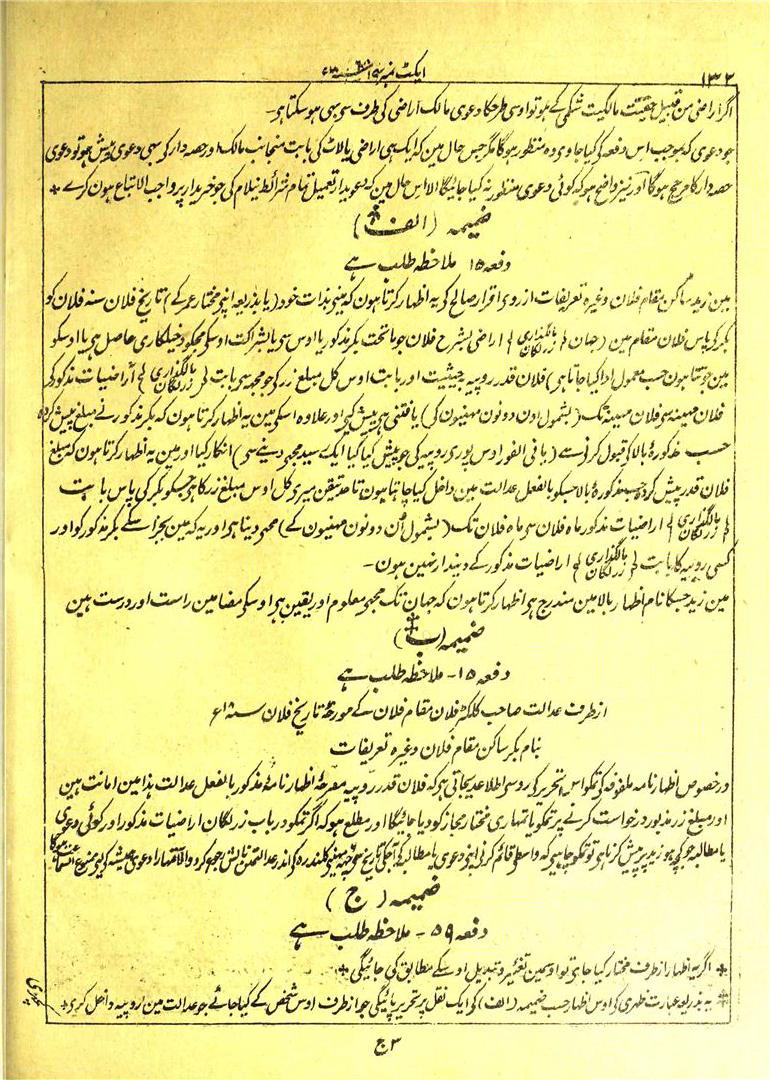 ۱۳۲
ایکٹ نمبر
اگر اراضی من قبیل حقیت مالکیت شکمی کے ہو تو اوسی طرحکا دعوی مالک اراضی کی طرف سی بہی ہو سکتا ہو-
جو دعوی کہ بموجب اس دفعہ کی کیا جاوی وہ منظور ہوگا مگر جس حال مین کہ ایک ہی اراضی یا لاٹ کی بابت منجانب مالک اور حصہ دار کی بہی دعوی پیش ہو تو دعوی
حصہ دار کا مرجح ہوگا اور نیز واضح ہو کہ کوئی دعوی منظور نہ کیا جائیگا الا اس حال مین کہ دعویدار تعمیل تمام شرائط نیلام کی جو خریدار پر واجب الاتباع ہون کرے *
ضمیمہ (الف) *
دفعہ ۱۵ ملاحظہ طلب ہے
مین زید ساکن مقام فلان وغیرہ تعریفات از روی اقرار صالح کی یہ اظہار کرتا ہون کہ مینی بذات خود (یا بذریعہ اپنی مختار عمر کے) تاریخ فلان سنہ فلان کو
بکر کی پاس فلان مقام مین (جہان [مالگذاری / زر لگان] اراضی بشرح فلان جو ماتحت بکر مذکور یا اوس سی یا بشراکت اوسکی محکو دخیلکاری حاصل ہی یا اوسکو
مین جوتتا ہون حسب معمول ادا کیا جاتا ہی) فلان قدر روپیہ بحیثیت اور بابت اوس کل مبلغ زر کی جو مجہہ سی بابت [مالگذاری / زر لگان] اراضیات مذکور کی
فلان مہینہ سی فلان مہینہ تک (بشمول اون دونون مہینون کی) یافتنی ہی پیش کیی اور علاوہ اسکی مین یہ اظہار کرتا ہون کہ بکر مذکور نے مبلغ پیش کردہ
حسب مذکورۂ بالا کی قبول کرنی سے (یا فی الفور اوس پوری روپیہ کی جو پیش کیا گیا ایک رسید مجہی دینے سی) انکار کیا اور مین یہ اظہار کرتا ہون کہ مبلغ
فلان قدر پیش کردہ حسب مذکورۂ بالا جسکو بالفعل عدالت مین داخل کیا چاہتا ہون تا حد یقین میری کل اوس مبلغ زر کا ہی جسکو بکر کی پاس بابت
[مالگذاری / زر لگان] اراضیات مذکور ماہ فلان سی ماہ فلان تک (بشمول اُن دونون مہینون کے) مجہی دینا ہی اور یہ کہ مین بجز اسکے بکر مذکور کو اور
کسی روپیہ کا بابت [مالگذاری / زر لگان] اراضیات مذکور کے دیندار نہین ہون-
مین زید جسکا نام اظہار بالا مین مندرج ہی اظہار کرتا ہون کہ جہان تک مجہی معلوم اور یقین ہی اوسکی مضامین راست اور درست ہین
ضمیمہ (ب) *
دفعہ ۱۵- ملاحظہ طلب ہے
از طرف عدالت صاحب کلکٹر فلان مقام فلان کے مورخۂ تاریخ فلان سنہ ۱۸ء
بنام بکر ساکن مقام فلان وغیرہ تعریفات
درخصوص اظہار نامہ ملفوفہ کی تمکو اس تحریر کی رو سی اطلاع دیجاتی ہی کہ فلان قدر روپیہ مفرحۂ اظہار نامۂ مذکور بالفعل عدالت ہذا مین امانت ہین
اور مبلغ زر مذبور درخواست کرنے پر تمکو یا تمہاری مختار مجاز کو دیا جائیگا اور مطلع ہو کہ اگر تمکو در باب زر لگان اراضیات مذکور اور کوئی دعوی
یا مطالبہ جو کچہہ ہو زید پر پیش کرنا ہی تو تمکو چاہیی کہ واسطی قائم کرنی اپنی دعوی یا مطالبہ کی آجکی تاریخ سی چہہ مہینی کلندرہ کی اندر عدالت مین نالش رجوع کرو والا تمہارا دعوی ہمیشہ کیلیی ہوگا
ضمیمہ (ج)
دفعہ ۵۹- ملاحظہ طلب ہے
* اگر یہ اظہار از طرف مختار کیا جای تو اوسمین تغیر و تبدیل اوسکے مطابق کی جائیگی *
* یہ بذریعہ عبارت ظہری کی اوس اظہار حسب ضمیمہ (الف) کی ایک نقل پر تحریر پائیگی جو از طرف اوس شخص کے کیا جائے جو عدالت مین روپیہ داخل کری *
۳ ج